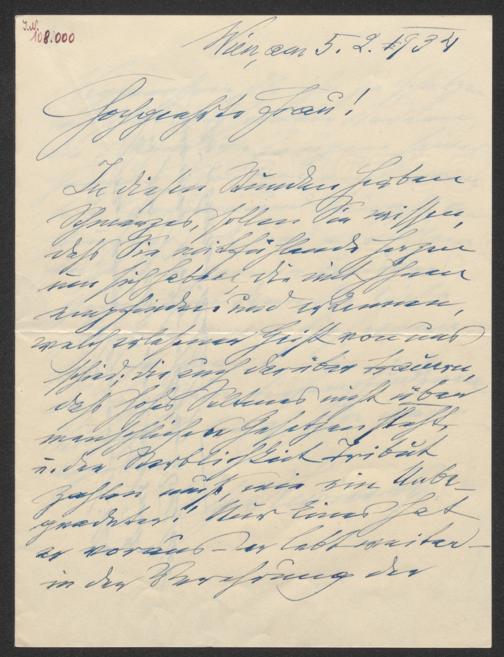 I.N.
108.000
Wien, am 5. 2. 1934
Hochgeehrte Frau!
In diesen Stunden herben
Schmerzes, sollen Sie wissen,
daß Sie mitfühlende Herzen
um sich haben, die mit Ihnen
empfinden und erkennen,
welch erlesener Geist von uns
schied; die auch darüber trauern,
daß solch Seltenes nicht über
menschlichen Gesetzen steht
u. der Sterblichkeit Tribut
zahlen muß, wie ein Unbe-
gnadeter! Nur Eines hat
er voraus – er lebt weiter –
in der Verehrung der